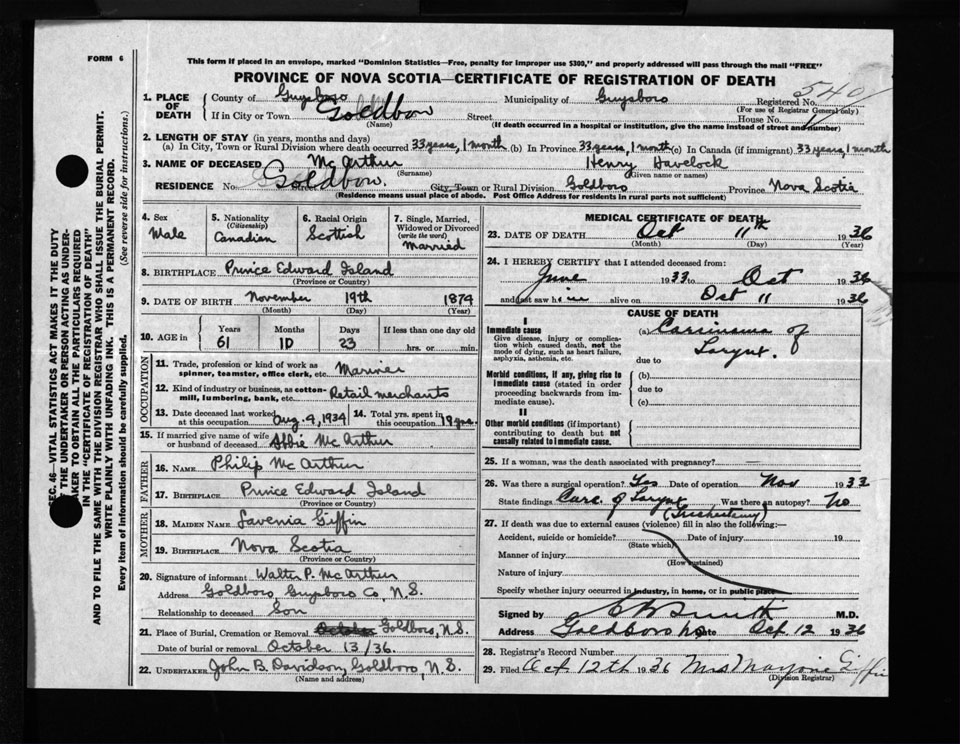 FORM 6
This form if placed in an envelope, marked "Dominion Statistics—Free, penalty for improper use $300," and properly addressed will pass through the mail "FREE"
PROVINCE OF NOVA SCOTIA—CERTIFICATE OF REGISTRATION OF DEATH
540
1. PLACE OF DEATH County of Guysboro Municipality of Guysboro Registered No.
(For use of Registrar General only)
If in City or Town Goldboro Street House No.
(Name) (If death occurred in a hospital or institution, give the name instead of street and number)
2. LENGTH OF STAY (in years, months and days)
(a) In City, Town or Rural Division where death occurred 33 years, 1 month (b) In Province 33 years, 1 month (c) In Canada (if immigrant) 33 years, 1 month
3. NAME OF DECEASED McArthur Henry Havelock
(Surname) (Given name or names)
RESIDENCE No. Street Goldboro. City, Town or Rural Division Goldboro Province Nova Scotia
(Residence means usual place of abode. Post Office Address for residents in rural parts not sufficient)
4. Sex Male
5. Nationality (Citizenship) Canadian
6. Racial Origin Scottish
7. Single, Married, Widowed or Divorced (write the word) Married
8. BIRTHPLACE Prince Edward Island
(Province or Country)
9. DATE OF BIRTH November 19th 1874
(Month) (Day) (Year)
10. AGE in Years 61 Months 10 Days 23 If less than one day old hrs. or min.
OCCUPATION
11. Trade, profession or kind of work as spinner, teamster, office clerk, etc. Mariner
12. Kind of industry or business, as cotton-mill, lumbering, bank, etc. Retail merchants
13. Date deceased last worked at this occupation Aug. 9, 1934 14. Total yrs. spent in this occupation 19 yrs.
15. If married give name of wife or husband of deceased Abbie McArthur
FATHER
16. NAME Philip McArthur
17. BIRTHPLACE Prince Edward Island
(Province or Country)
MOTHER
18. MAIDEN NAME Lavenia Giffin
19. BIRTHPLACE Nova Scotia
(Province or Country)
20. Signature of informant Walter P. McArthur
Address Goldboro, Guysboro Co, N.S.
Relationship to deceased Son
21. Place of Burial, Cremation or Removal October Goldboro, N.S.
Date of burial or removal October 13/36.
22. UNDERTAKER John B. Davidson, Goldboro, N.S.
(Name and address)
MEDICAL CERTIFICATE OF DEATH
23. DATE OF DEATH Oct 11th 1936
(Month) (Day) (Year)
24. I HEREBY CERTIFY that I attended deceased from:
June 1933 to Oct 1936
and last saw him alive on Oct 11 1936
CAUSE OF DEATH
I
Immediate cause (a) Carcinoma of
Give disease, injury or complication which caused death, not the mode of dying, such as heart failure, asphyxia, asthenia, etc.
Larynx.
due to
Morbid conditions, if any, giving rise to immediate cause (stated in order proceeding backwards from immediate cause). (b)
due to
(c)
II
Other morbid conditions (if important) contributing to death but not causally related to immediate cause.
25. If a woman, was the death associated with pregnancy? —
26. Was there a surgical operation? Yes Date of operation Nov 1933
State findings Carc. of Larynx Was there an autopsy? No
27. If death was due to external causes (violence) fill in also the following:—
Accident, suicide or homicide? Date of injury 19
(State which)
Manner of injury
(How sustained)
Nature of injury
Specify whether injury occurred in industry, in home, or in public place
Signed by Smith M.D.
Address Goldboro NS Date Oct 12 1936
28. Registrar's Record Number
29. Filed Oct 12th 1936 Mrs Marjorie Giffin
(Division Registrar)
SEC. 46—VITAL STATISTICS ACT MAKES IT THE DUTY
OF THE UNDERTAKER OR PERSON ACTING AS UNDER-
TAKER TO OBTAIN ALL THE PARTICULARS REQUIRED
IN THE "CERTIFICATE OF REGISTRATION OF DEATH"
AND TO FILE THE SAME WITH THE DIVISION REGISTRAR WHO SHALL ISSUE THE BURIAL PERMIT.
WRITE PLAINLY WITH UNFADING INK. THIS IS A PERMANENT RECORD.
Every item of information should be carefully supplied. (See reverse side for instructions.)